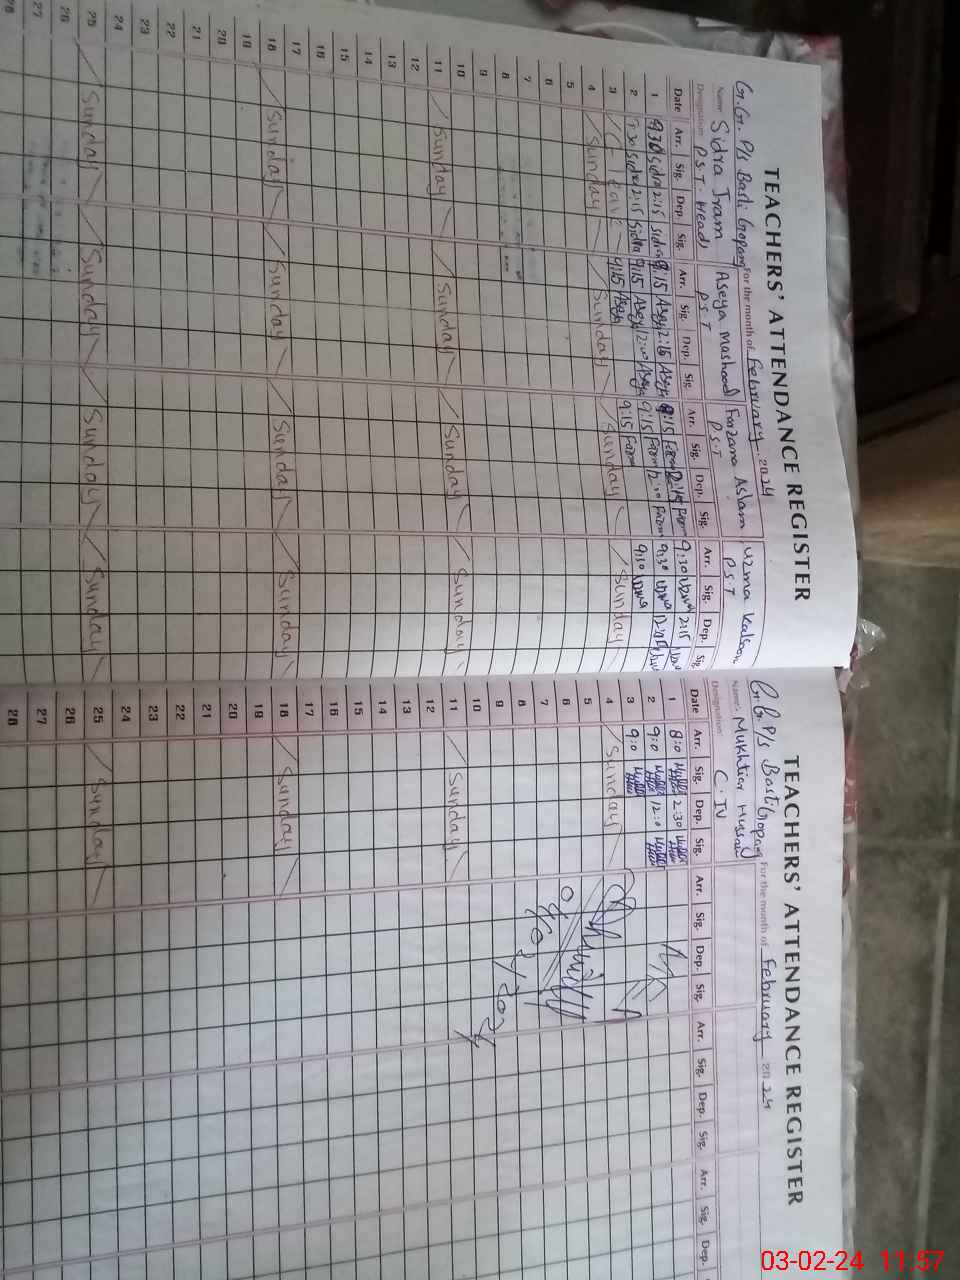 TEACHERS' ATTENDANCE REGISTER
G.G. P/s Basti Gopang For the month of February 2024
Name Sidra Iram Aseya Mashood Farzana Aslam Uzma Kalsoom
Designation P.S.T. Head P.S.T P.S.T P.S.T
Date Arr. Sig. Dep. Sig. Arr. Sig. Dep. Sig. Arr. Sig. Dep. Sig. Arr. Sig. Dep. Sig
1 9:30 Sidra 2:15 Sidra 9:15 Aseya 2:15 Aseya 9:15 2:15 9:30 Uzma 2:15
2 9:30 Sidra 2:15 Sidra 9:15 Aseya 12:10 Aseya 9:15 12:10 9:30 Uzma 12:10
3 C leave 9:15 Aseya 9:15 9:30 Uzma
4 Sunday Sunday Sunday Sunday
5
6
7
8
9
10
11 Sunday Sunday Sunday Sunday
12
13
14
15
16
17
18 Sunday Sunday Sunday Sunday
19
20
21
22
23
24
25 Sunday Sunday Sunday Sunday
26
27
28
TEACHERS' ATTENDANCE REGISTER
G.G. P/s Basti Gopang For the month of February 2024
Name: Mukhtiar Hussain
Designation C.IV
Date Arr. Sig. Dep. Sig. Arr. Sig. Dep. Sig. Arr. Sig. Dep. Sig. Arr. Sig. Dep.
1 8:0 2:30
2 9:0 12:10
3 9:0
4 Sunday
5
6
7
8
9
10
11 Sunday
12
13
14
15
16
17
18 Sunday
19
20
21
22
23
24
25 Sunday
26
27
28
03-02-24 11:57